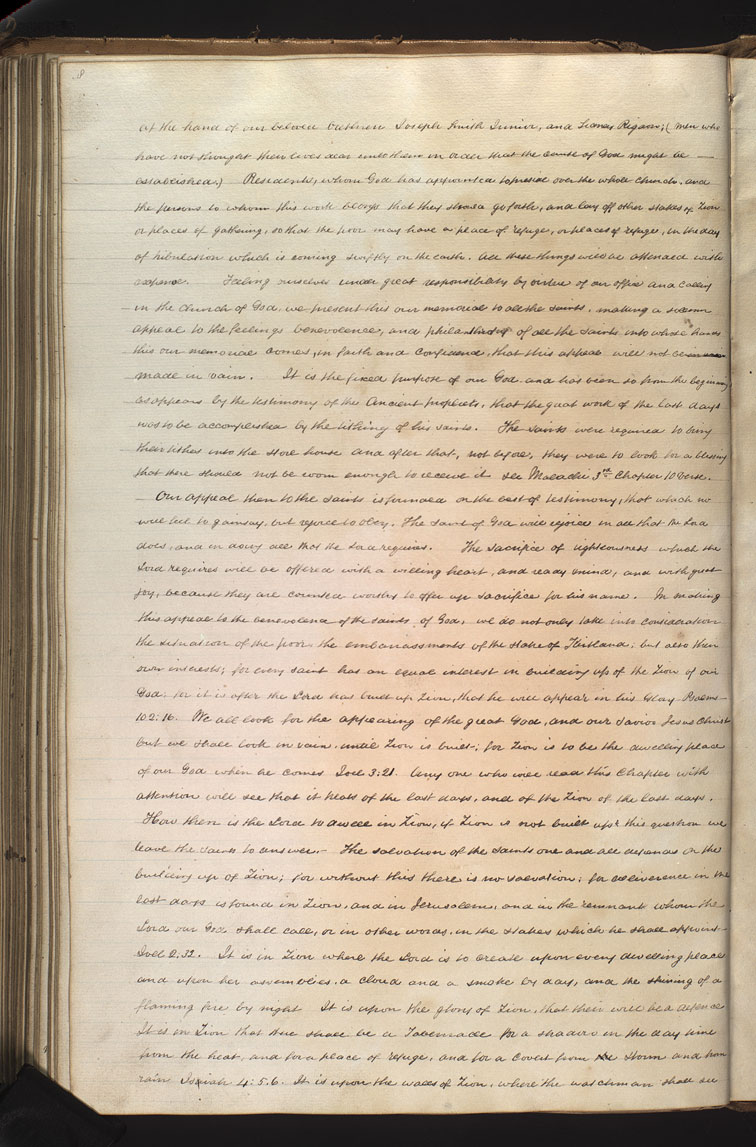 8
at the hand of our beloved brethren Joseph Smith Junior, and Sidney Rigdon; (men who
have not thought their lives dear unto them in order that the cause of God might be —
established) Residents, whom God has appointed to preside over the whole church, and
the persons to whom this work belongs that they should go forth, and lay off other stakes of Zion
or places of gathering, so that the poor may have a place of refuge, or places of refuge, in the day
of tribulation which is coming swiftly on the earth. All these things will be attended with
expense. Feeling ourselves under great responsibility by virtue of our office and calling
in the church of God, we present this our memorial to all the saints, making a solemn
appeal to the feelings benevolence, and philanthrophy of all the saints into whose hands
this our memorial comes, in faith and confidence, that this appeal will not be
made in vain. It is the fixed purpose of our God and has been so from the beginning
as appears by the testimony of the Ancient prophets, that the great work of the last days
was to be accomplished by the tithing of his saints. The saints were required to bring
their tithes into the store house and after that, not before, they were to look for a blessing
that there should not be room enough to receive it see Malachi 3rd Chapter 10 verse.
Our appeal then to the saints is founded on the best of testimony, that which no
will feel to gainsay, but rejoice to obey. The saint of God will rejoice in all that the Lord
does, and in doing all that the Lord requires. The sacrifice of righteousness which the
Lord requires will be offered with a willing heart, and ready mind, and with great
joy, because they are counted worthy to offer up sacrifice for his name. In making
this appeal to the benevolence of the saints of God, we do not only take into consideration
the situation of the poor the embarrassments of the stake of Kirtland, but also their
own interests; for every saint has an equal interest in building up of the Zion of our
God; for it is after the Lord has built up Zion, that he will appear in his Glory Psalms
102:16. We all look for the appearing of the great God, and our savior Jesus Christ
but we shall look in vain until Zion is built; for Zion is to be the dwelling place
of our God when he comes Joel 3:21. Any one who will read this Chapter with
attention will see that it treats of the last days, and of the Zion of the last days.
How then is the Lord to dwell in Zion, if Zion is not built up? this question we
leave the saints to answer. The salvation of the saints one and all depends on the
building up of Zion; for without this there is no salvation; for deliverence in the
last days is found in Zion, and in Jerusalem, and in the remnant whom the
Lord our God shall call, or in other words, in the stakes which he shall appoint
Joel 2:32. It is in Zion where the Lord is to create upon every dwelling place
and upon her assemblies, a cloud and a smoke by day, and the shining of a
flaming fire by night It is upon the glory of Zion, that their will be a defence
It is in Zion that there shall be a Tabernacle for a shadow in the day time
from the heat, and for a place of refuge, and for a Covert from the storm and from
rain Isaiah 4:5.6. It is upon the walls of Zion, where the watchman shall see